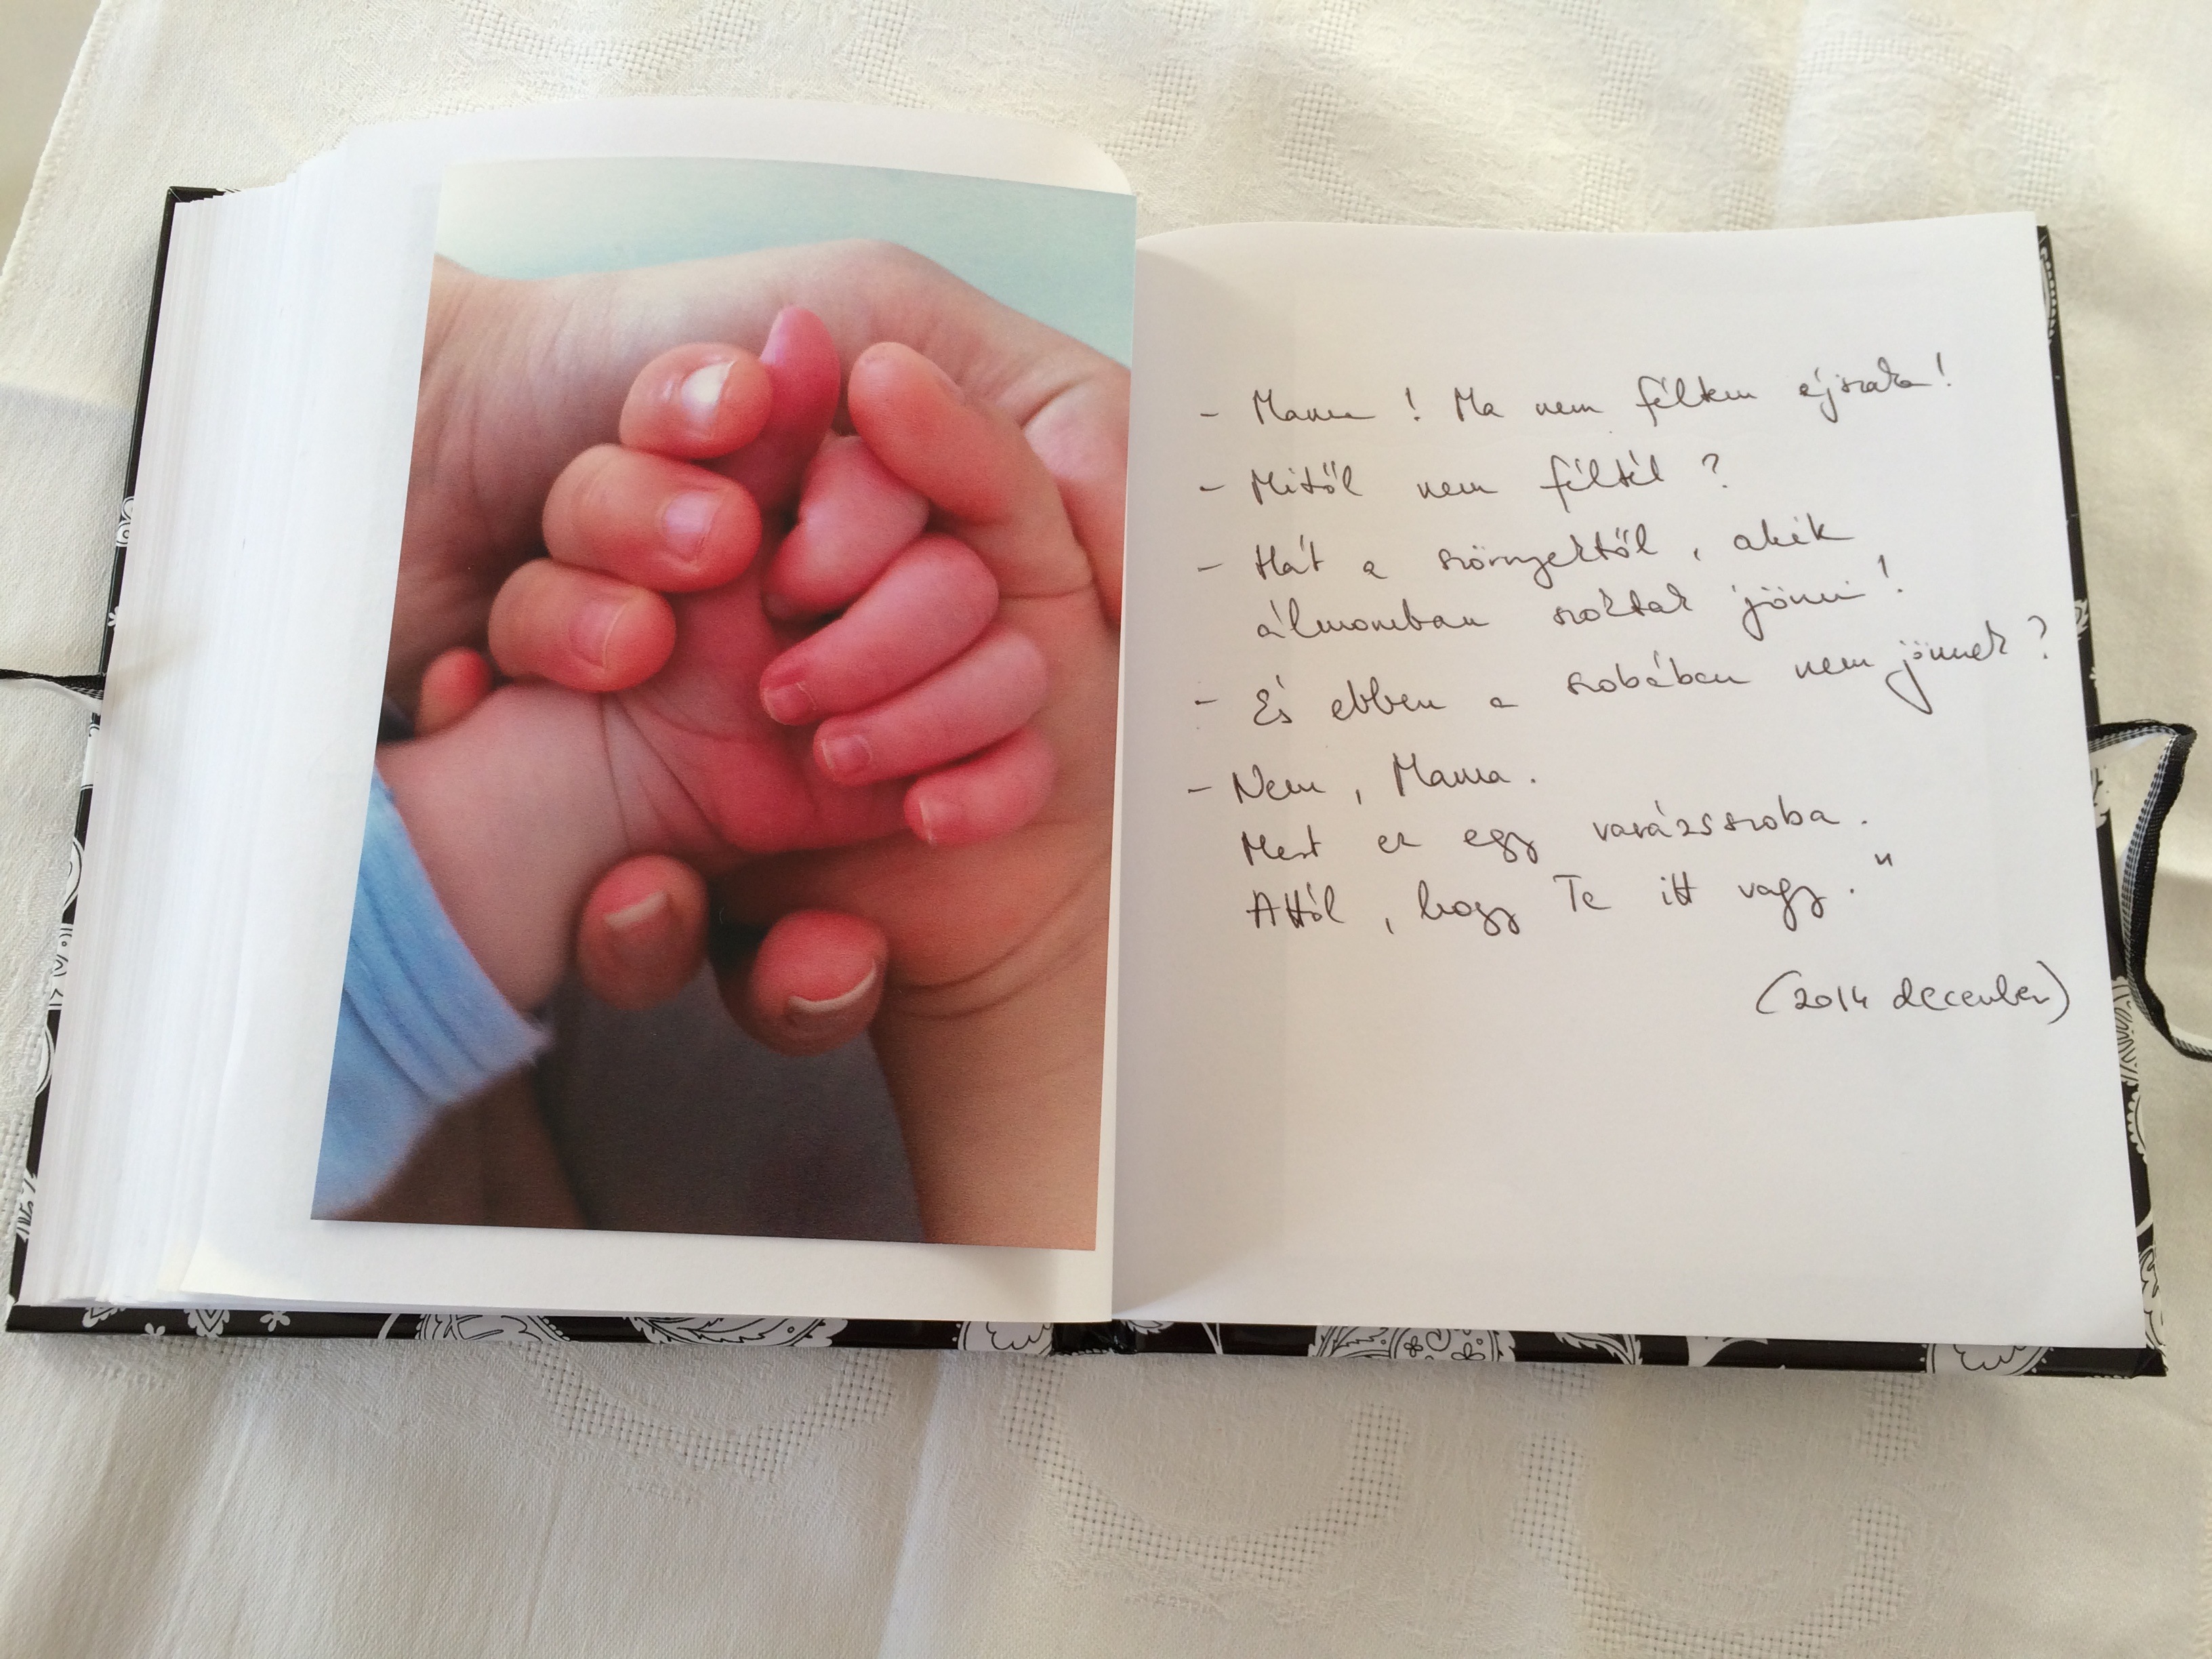 - Mama! Ma nem féltem éjszaka!
- Mitől nem féltél?
- Hát a szörnyektől, akik
álmomban szoktak jönni!
- És ebben a szobában nem jönnek?
- Nem, Mama.
Mert ez egy varázsszoba.
Attól, hogy Te itt vagy."
(2014 december)